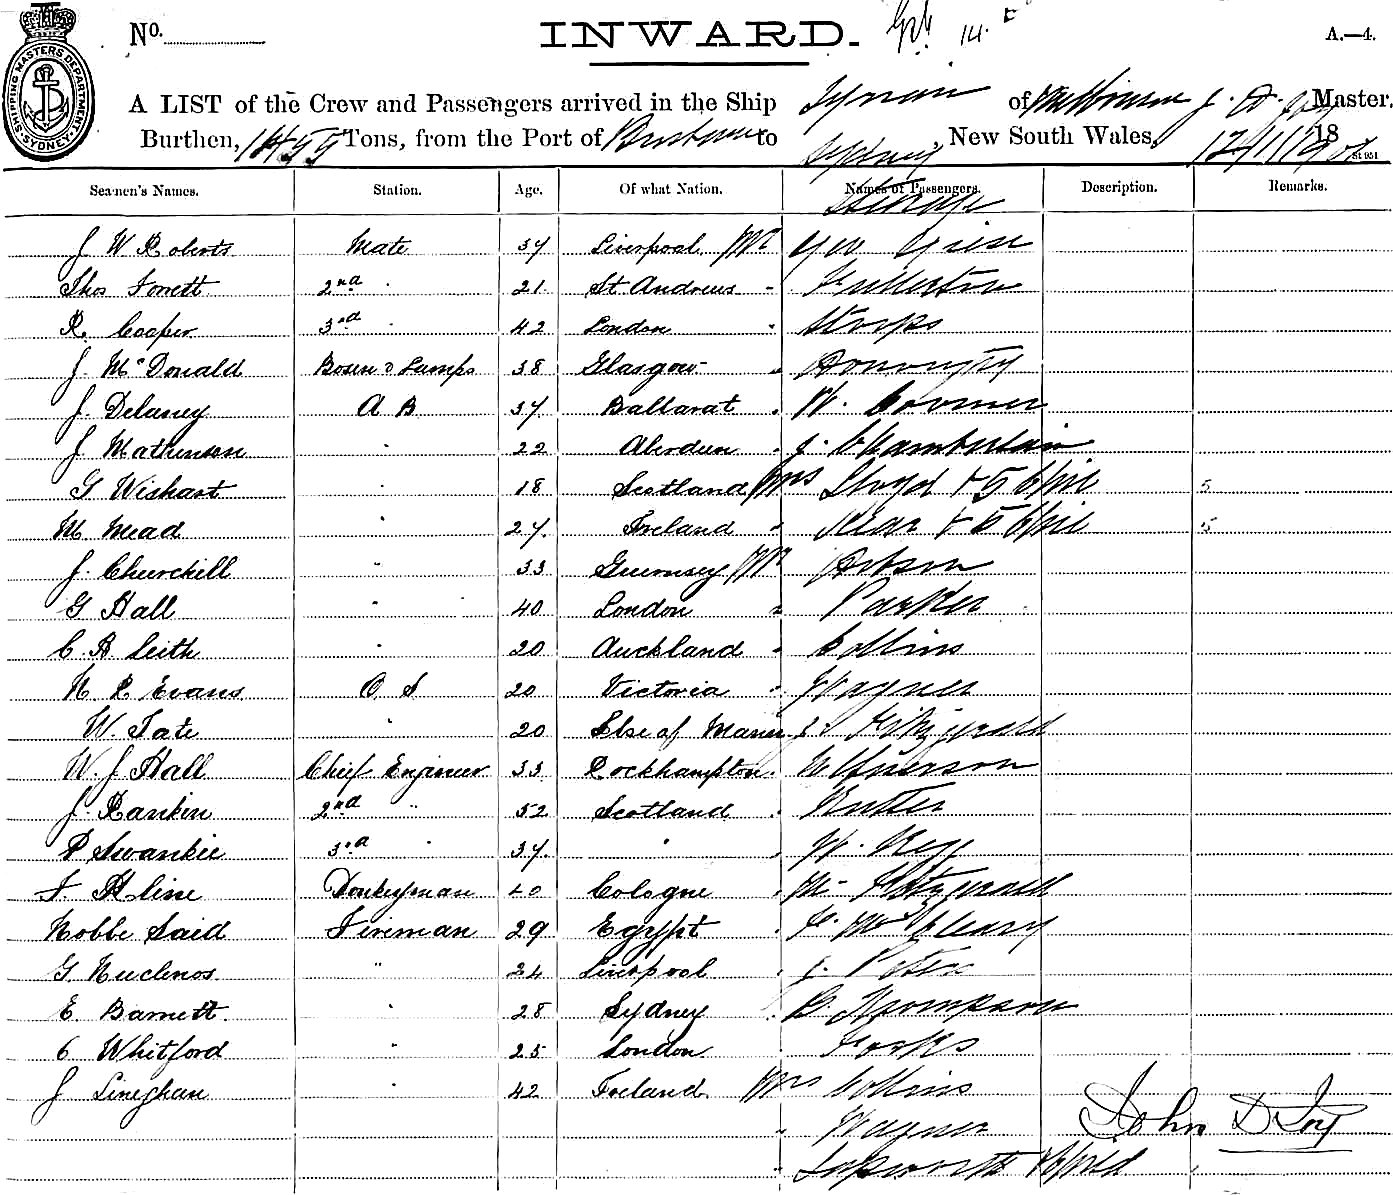 No. INWARD. 14. A.—4.
SHIPPING MASTERS DEPARTMENT. SYDNEY.
A LIST of the Crew and Passengers arrived in the Ship Tyrian of Melbourne J. D. Joy Master.
Burthen, 1455 Tons, from the Port of Brisbane to Sydney New South Wales, 12/1/1901 18
St 951
Seamen's Names. Station. Age. Of what Nation. Names of Passengers. Description. Remarks.
Steerage
J W Roberts Mate 37 Liverpool Mr Geo
Thos 2nd " 21 St Andrews " Fullerton
R. Cooper 3rd " 42 London "
J. McDonald Bosun & Lamps 38 Glasgow "
J. Delaney A B 37 Ballarat " W.
J Mathinson " 22 Aberdeen " J. Chamberlain
G Wishart " 18 Scotland Mrs Lloyd + 5 Chil 5
M Mead " 27 Ireland " Kear + 5 Chil 5
J. Churchill " 33 Guernsey Mr Hobson
G Hall " 40 London " Parker
C. H. Leith " 20 Auckland " Collins
N R Evans O S 20 Victoria " Wagner
W. Tate " 20 Isle of Mann " J. Fitzgerald
W. J Hall Chief Engineer 33 Rockhampton "
J. Rankin 2nd " 52 Scotland "
P Swankie 3rd " 37 " " W.
F. Kline Donkeyman 40 Cologne " M. Fitzgerald
Nobbe Said Fireman 29 Egypt " McCleary
G. Nuclenos " 24 Liverpool " J.
E. Barnett " 28 Sydney " Thompson
C Whitford " 25 London "
J Lineghan " 42 Ireland Mrs Collins
" Wagner
" Ludsworth + Child
John D Joy